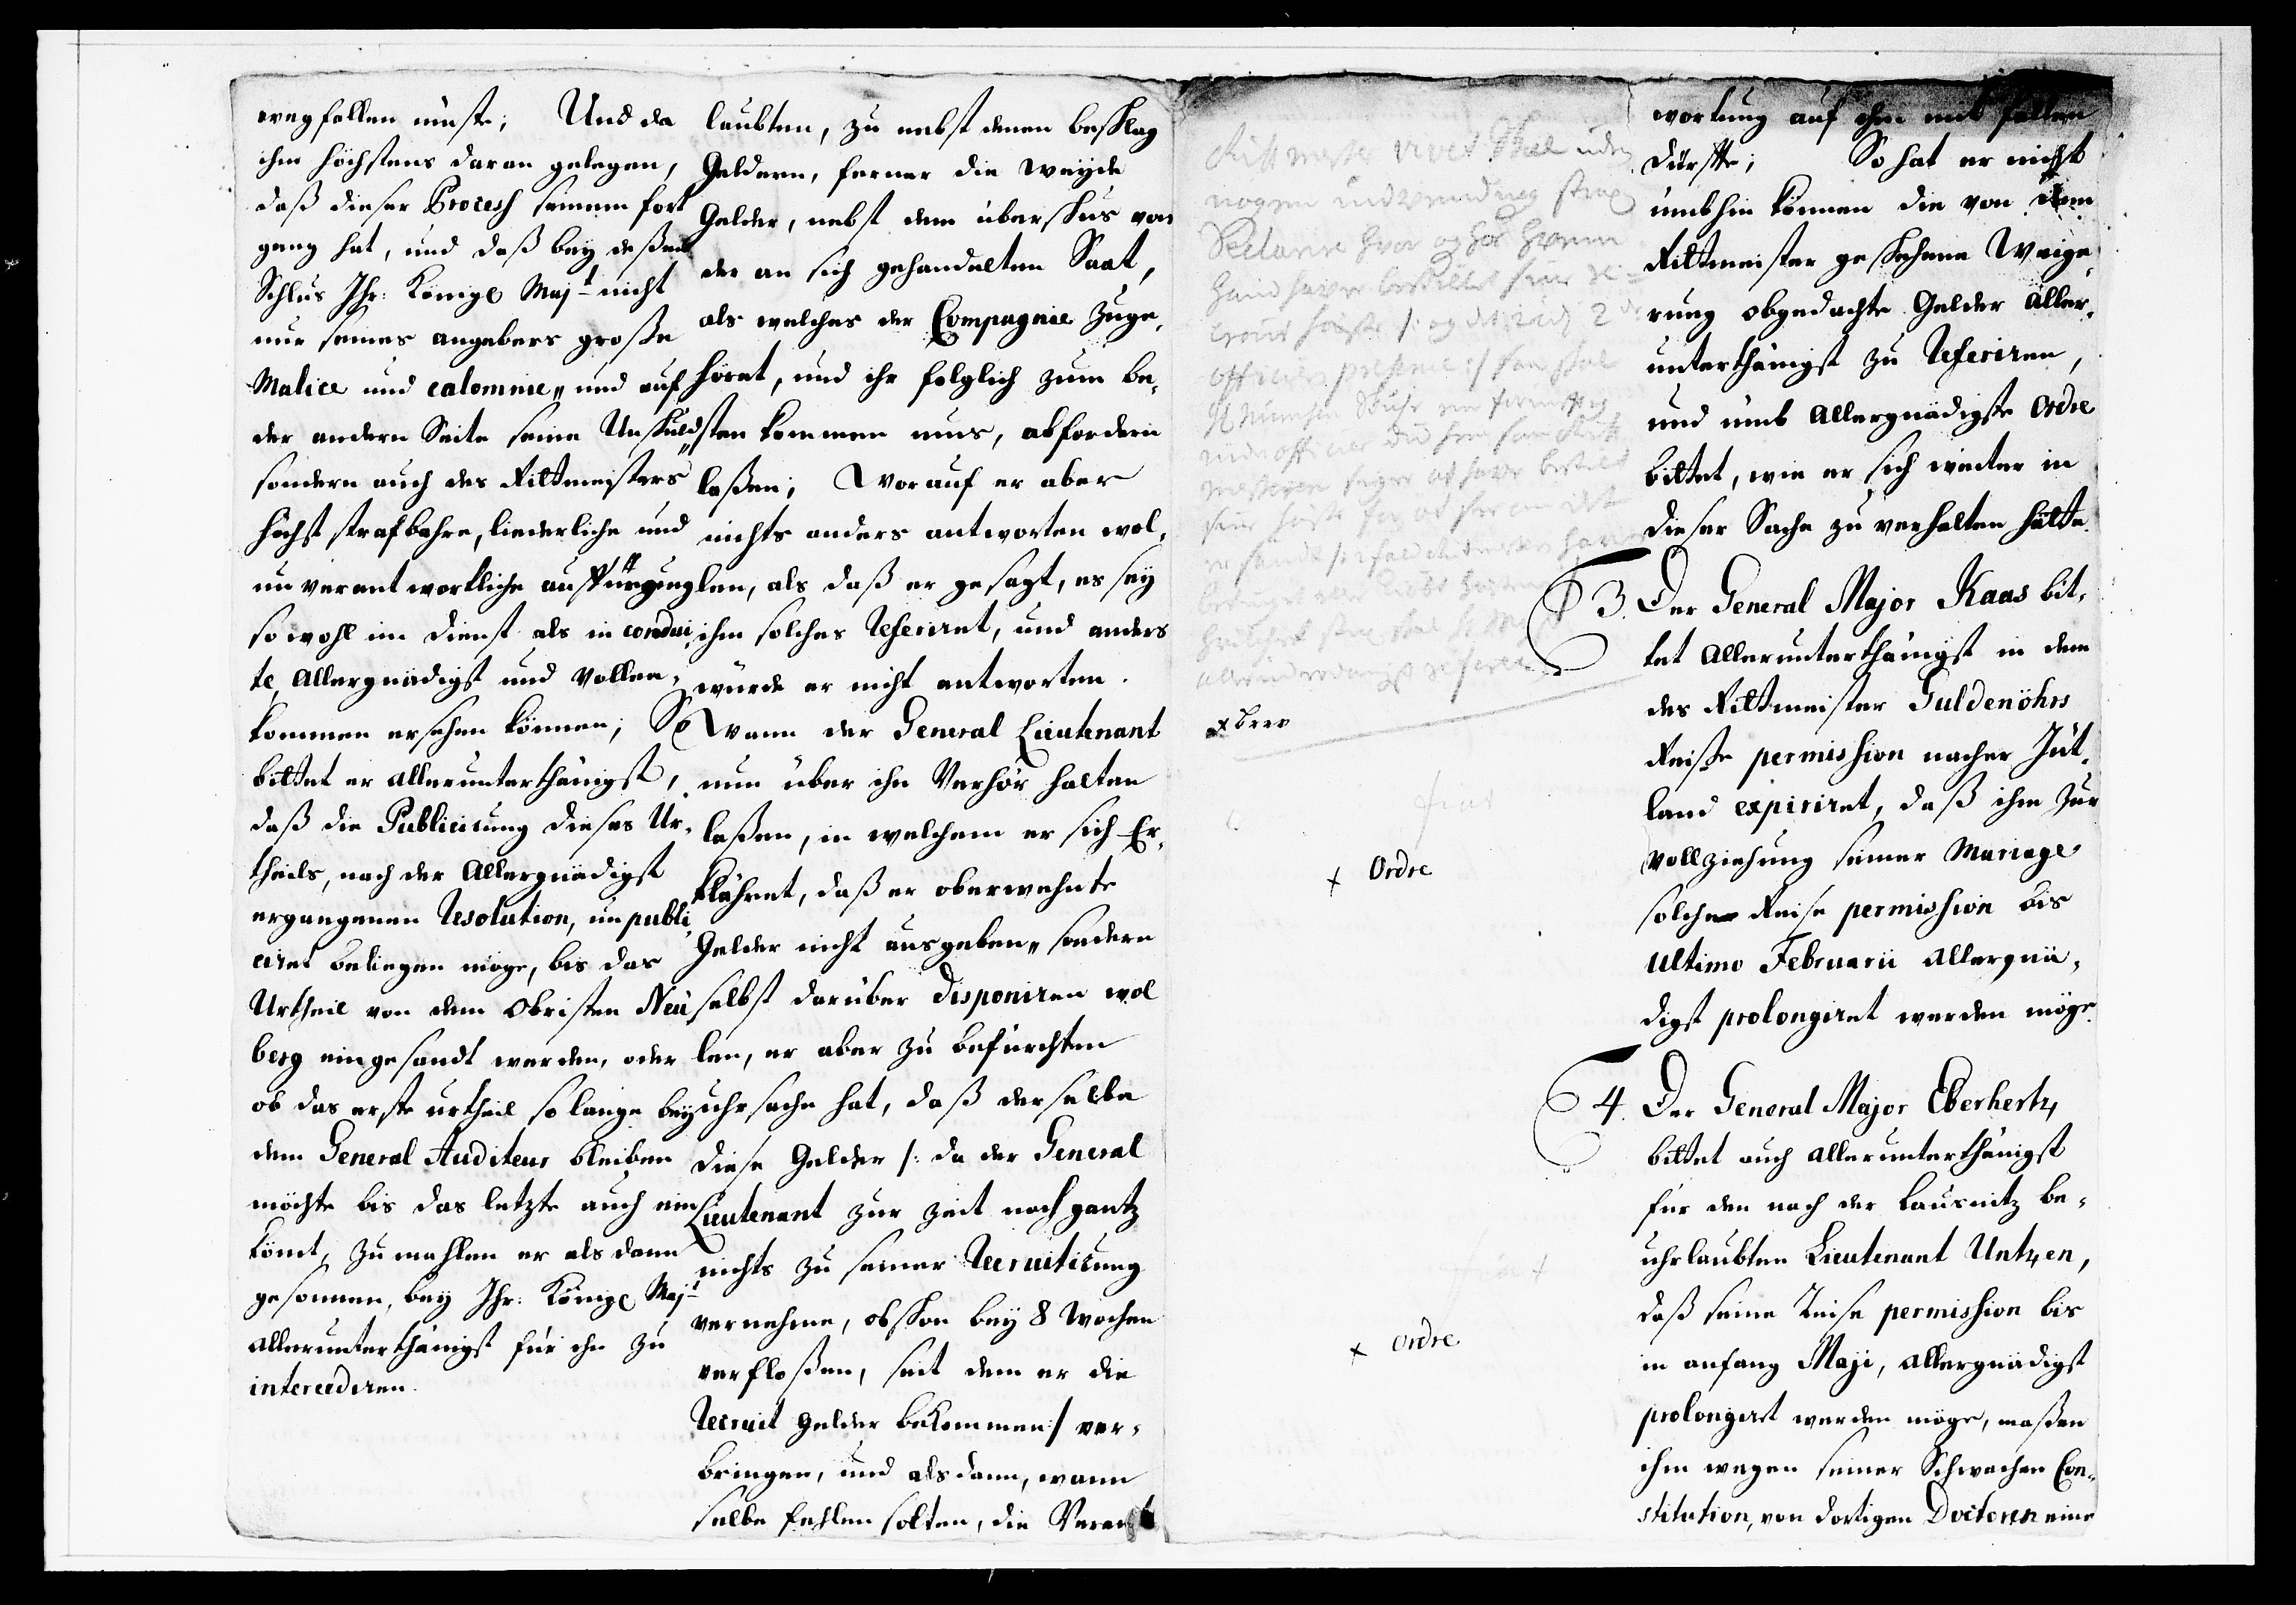 wegfallen müste; Und da
ihm höchstens daran gelegen,
daß dieser Process seinen fort
gang hat, und daß bey deßen
Schlus Ihr: Königl Majt nicht
nur seines angebers große
Malice und calomnie„ und auf
der andern Seite seine Unschuld„
sondern auch des Rittmeisters
höchst strafbahre, liederliche und
unverantwortliche aufführung
so wohl im Dienst als in condui,
te, Allergnädigst und vollen,
kommen ersehen können; So
bittet er allerunterthänigst,
daß die Publicirung dieses Ur,
theils, nach der Allergnädigst
ergangenen Resolution, unpubli,
ciret beliegen möge, bis das
Urtheil von dem Obristen Neu
berg eingesandt werden, oder
ob das erste urtheil so lange bey
dem General Auditeur bleiben
möchte bis das letzte auch ein
kömt, zumahlen er als dann
gesonnen, bey Ihr: Königl Majt
allerunterthänigst für ihn zu
intercediren.
laubten, zu nebst denen beschlag
Geldern, ferner die Weyde
Gelder, nebst dem überschus von
der an sich gehandelten Saat,
als welches der Compagnie zuge,
höret, und ihr folglich zum be,
sten kommen mus, abfordern
laßen; Worauf er aber
nichts anders antworten wol,
len, als daß er gesagt, es sey
ihm solches Referiret, und anders
würde er nicht antworten.
Wann der General Lieutenant
nun über ihn Verhör halten
laßen, in welchem er sich Er,
klähret, daß er oberwehnte
Gelder nicht ausgeben„ sondern
selbst darüber disponiren wol
len, er aber zu befürchten
uhrsache hat, daß derselbe
diese Gelder /: da der General
Lieutenant zur zeit noch gantz
nichts zu seiner Recruitirung
vernehme, obschon bey 8 Wochen
verfloßen, seit dem er die
Recruit Gelder bekommen :/ ver,
bringen, und alsdann, wann
selbe fehlen solten, die Verant
Ritt mester skal uden
nogen indvending strax
hvor og hos hvem
hand haver bestillet sine
officier
under officier
mesteren siger at have bestilt
sine heste
x brev
x Ordre
x ordre
wortung auf ihn mit fallen
dürffte; So hat er nicht
umbhin können die von dem
Rittmeister geschehene Weige,
rung obgedachte Gelder Aller,
unterthänigst zu Referiren,
und umb Allergnädigste Ordre
bittet, wie er sich weiter in
dieser Sache zu verhalten hätte.
3. Der General Major Kaas bit,
tet Allerunterthänigst in dem
des Rittmeister Guldenöhrs
Reise permission nacher Jüt,
land expiriret, daß ihm zur
Vollziehung seiner Mariage
solche Reise permission bis
ultimo Februarii Allergnä,
digst prolongiret werden möge.
4. Der General Major Eberhertz,
bittet auch allerunterthänigst
für den nach der Lausnitz be,
uhrlaubten Lieutenant Untzen,
daß seine Reise permission bis
in anfang Maji, Allergnädigst
prolongiret werden möge, maßen
ihm wegen seiner Schwachen Con,
stitution, von dortigen Doctoren eine